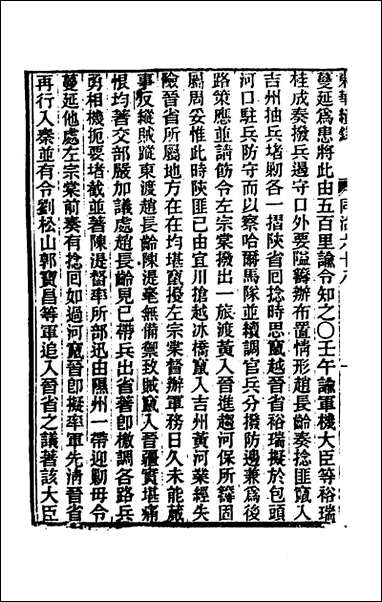 蔓延爲患將此由五百里諭令知之〇壬午諭軍機大臣等裕瑞
桂成奏撥兵遏守口外要隘籌辦布置情形趙長齡奏捻匪竄入
吉州抽兵堵剿各一摺陝省回捻時思竄越晉省裕瑞擬於包頭
河口駐兵防守而以察哈爾馬隊並續調官兵分撥防邊兼爲後
路策應並請飭令左宗棠撥出一旅渡黃入晉進趙河保所籌固
屬周妥惟此時陝匪已由宜川搶越冰橋竄入吉州黃河業經失
險晉省所屬地方在在均堪竄擾左宗棠督辦軍務日久未能蕆
事反縱賊蹤東渡趙長齡陳湜毫無備禦致賊竄入晉疆實堪痛
恨均著交部嚴加議處趙長齡見已帶兵出省著卽檄調各路兵
勇相機扼要堵截並著陳湜督率所部迅由隰州一帶迎剿毋令
蔓延他處左宗棠前奏有捻回如過河竄晉卽擬率軍先清晉省
再行入秦並有令劉松山郭寶昌等軍追入晉省之議著該大臣